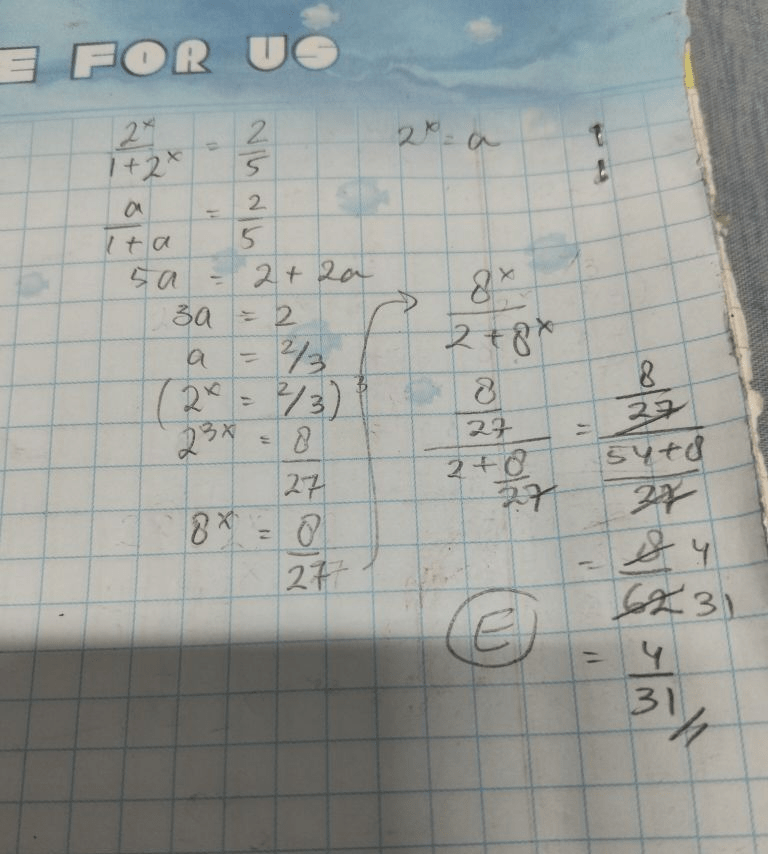 E FOR US
2^x / (1+2^x) = 2/5
2^x = a
a / (1+a) = 2/5
5a = 2 + 2a
3a = 2
a = 2/3
(2^x = 2/3)^3
2^{3x} = 8/27
8^x = 8/27
8^x / (2+8^x)
(8/27) / (2 + 8/27) = (8/27) / ((54+8)/27)
= 8/62 4 31
E
= 4/31 //